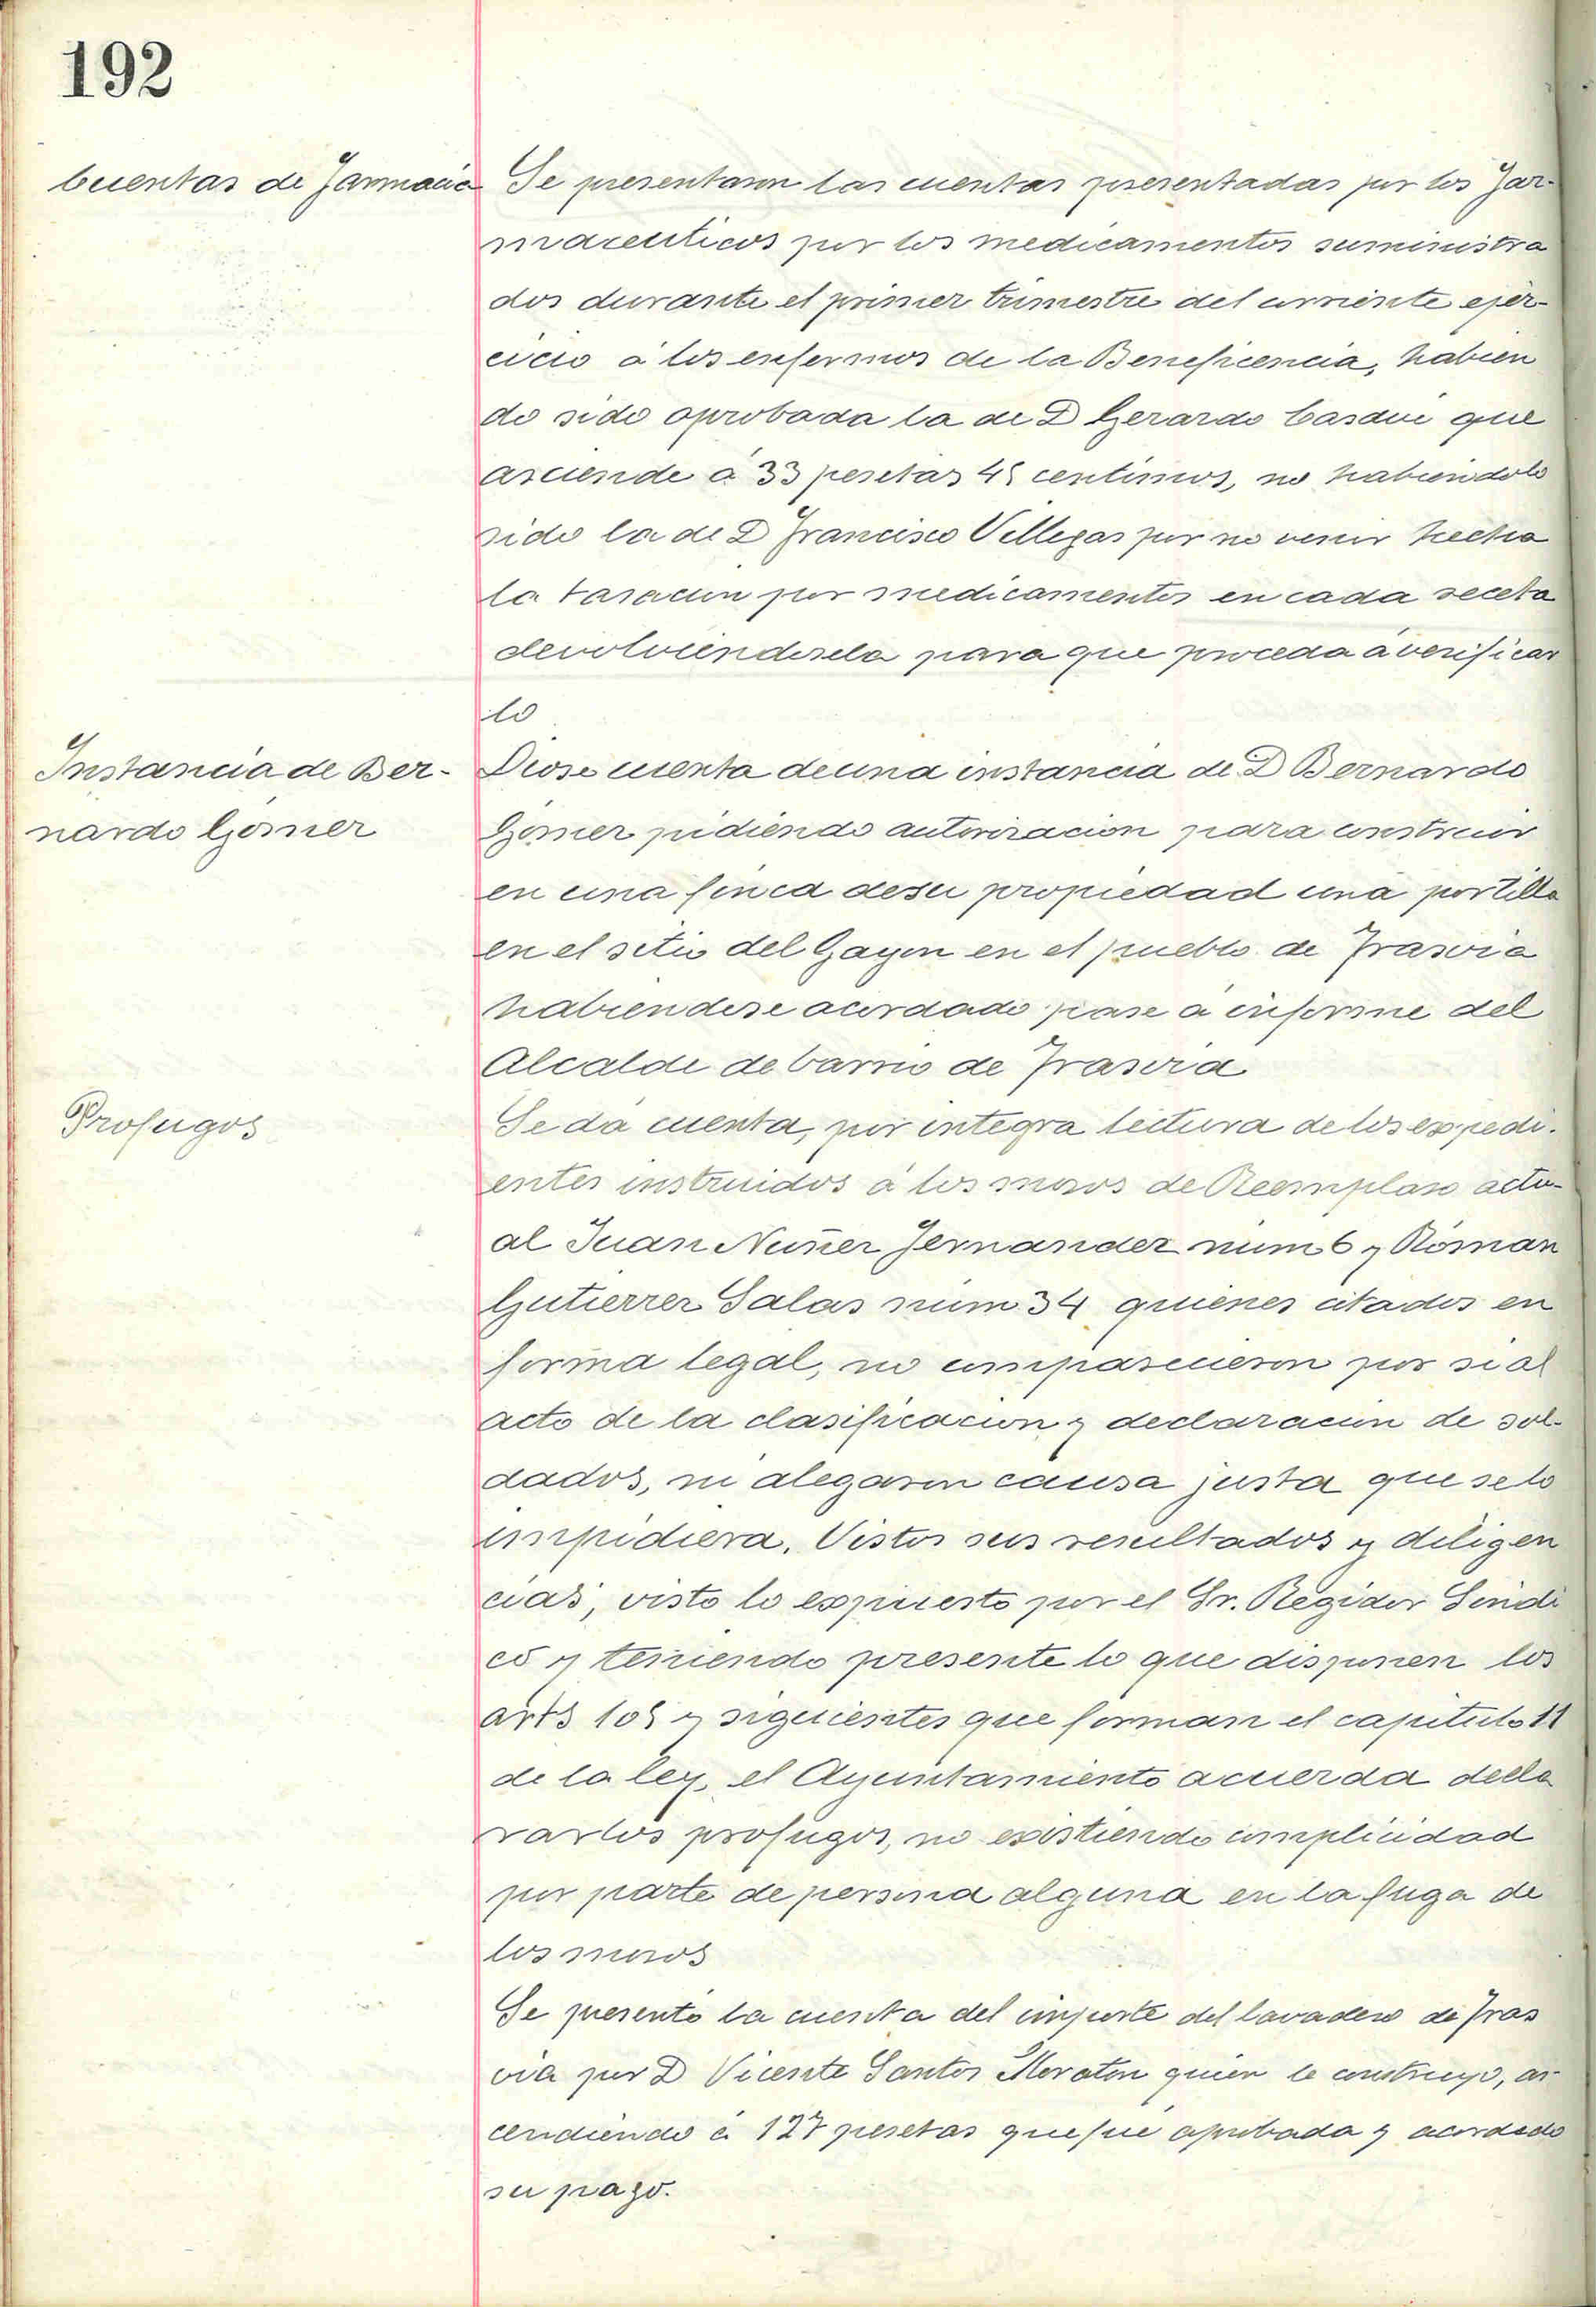 192
Cuentas de Farmacia
Se presentaron las cuentas presentadas por los Far-
maceuticos por los medicamentos suministra
dos durante el primer trimestre del corriente ejer-
cicio á los enfermos de la Beneficencia, habien
do sido aprobada la de D Gerardo Casdui que
asciende á 33 pesetas 45 centimos, no habiendolo
sido la de D Francisco Villegas por no venir hecha
la tasacion por medicamentos en cada receta
devolviendosela para que proceda á verificar
lo
Instancia de Ber-
nardo Gómer
Diose cuenta de una instancia de D Bernardo
Gómer pidiendo autorizacion para construir
en una finca de su propiedad una portilla
en el sitio del Gayon en el pueblo de Trasvia
habiendose acordado pase á informe del
Alcalde de barrio de Trasvia
Profugos
Se dá cuenta, por integra lectura de los expedi-
entes instruidos á los mozos de Reemplazo actu-
al Juan Nuñez Fernandez num 6 y Román
Gutierrez Salas num 34 quienes citados en
forma legal, no comparecieron por si al
acto de la clasificacion y declaracion de sol-
dados, ni alegaron causa justa que se lo
impidiera. Vistos sus resultados y diligen
cias, visto lo expuesto por el Sr. Regidor Sindi
co y teniendo presente lo que disponen los
arts 105 y siguientes que forman el capitulo 11
de la ley, el Ayuntamiento acuerda decla
rarlos profugos, no existiendo complicidad
por parte de persona alguna en la fuga de
los mozos
Se presentó la cuenta del importe del lavadero de Tras
via por D Vicente Santos Moraton quien le construyó, as-
cendiendo á 127 pesetas que fue aprobada y acordado
su pago.